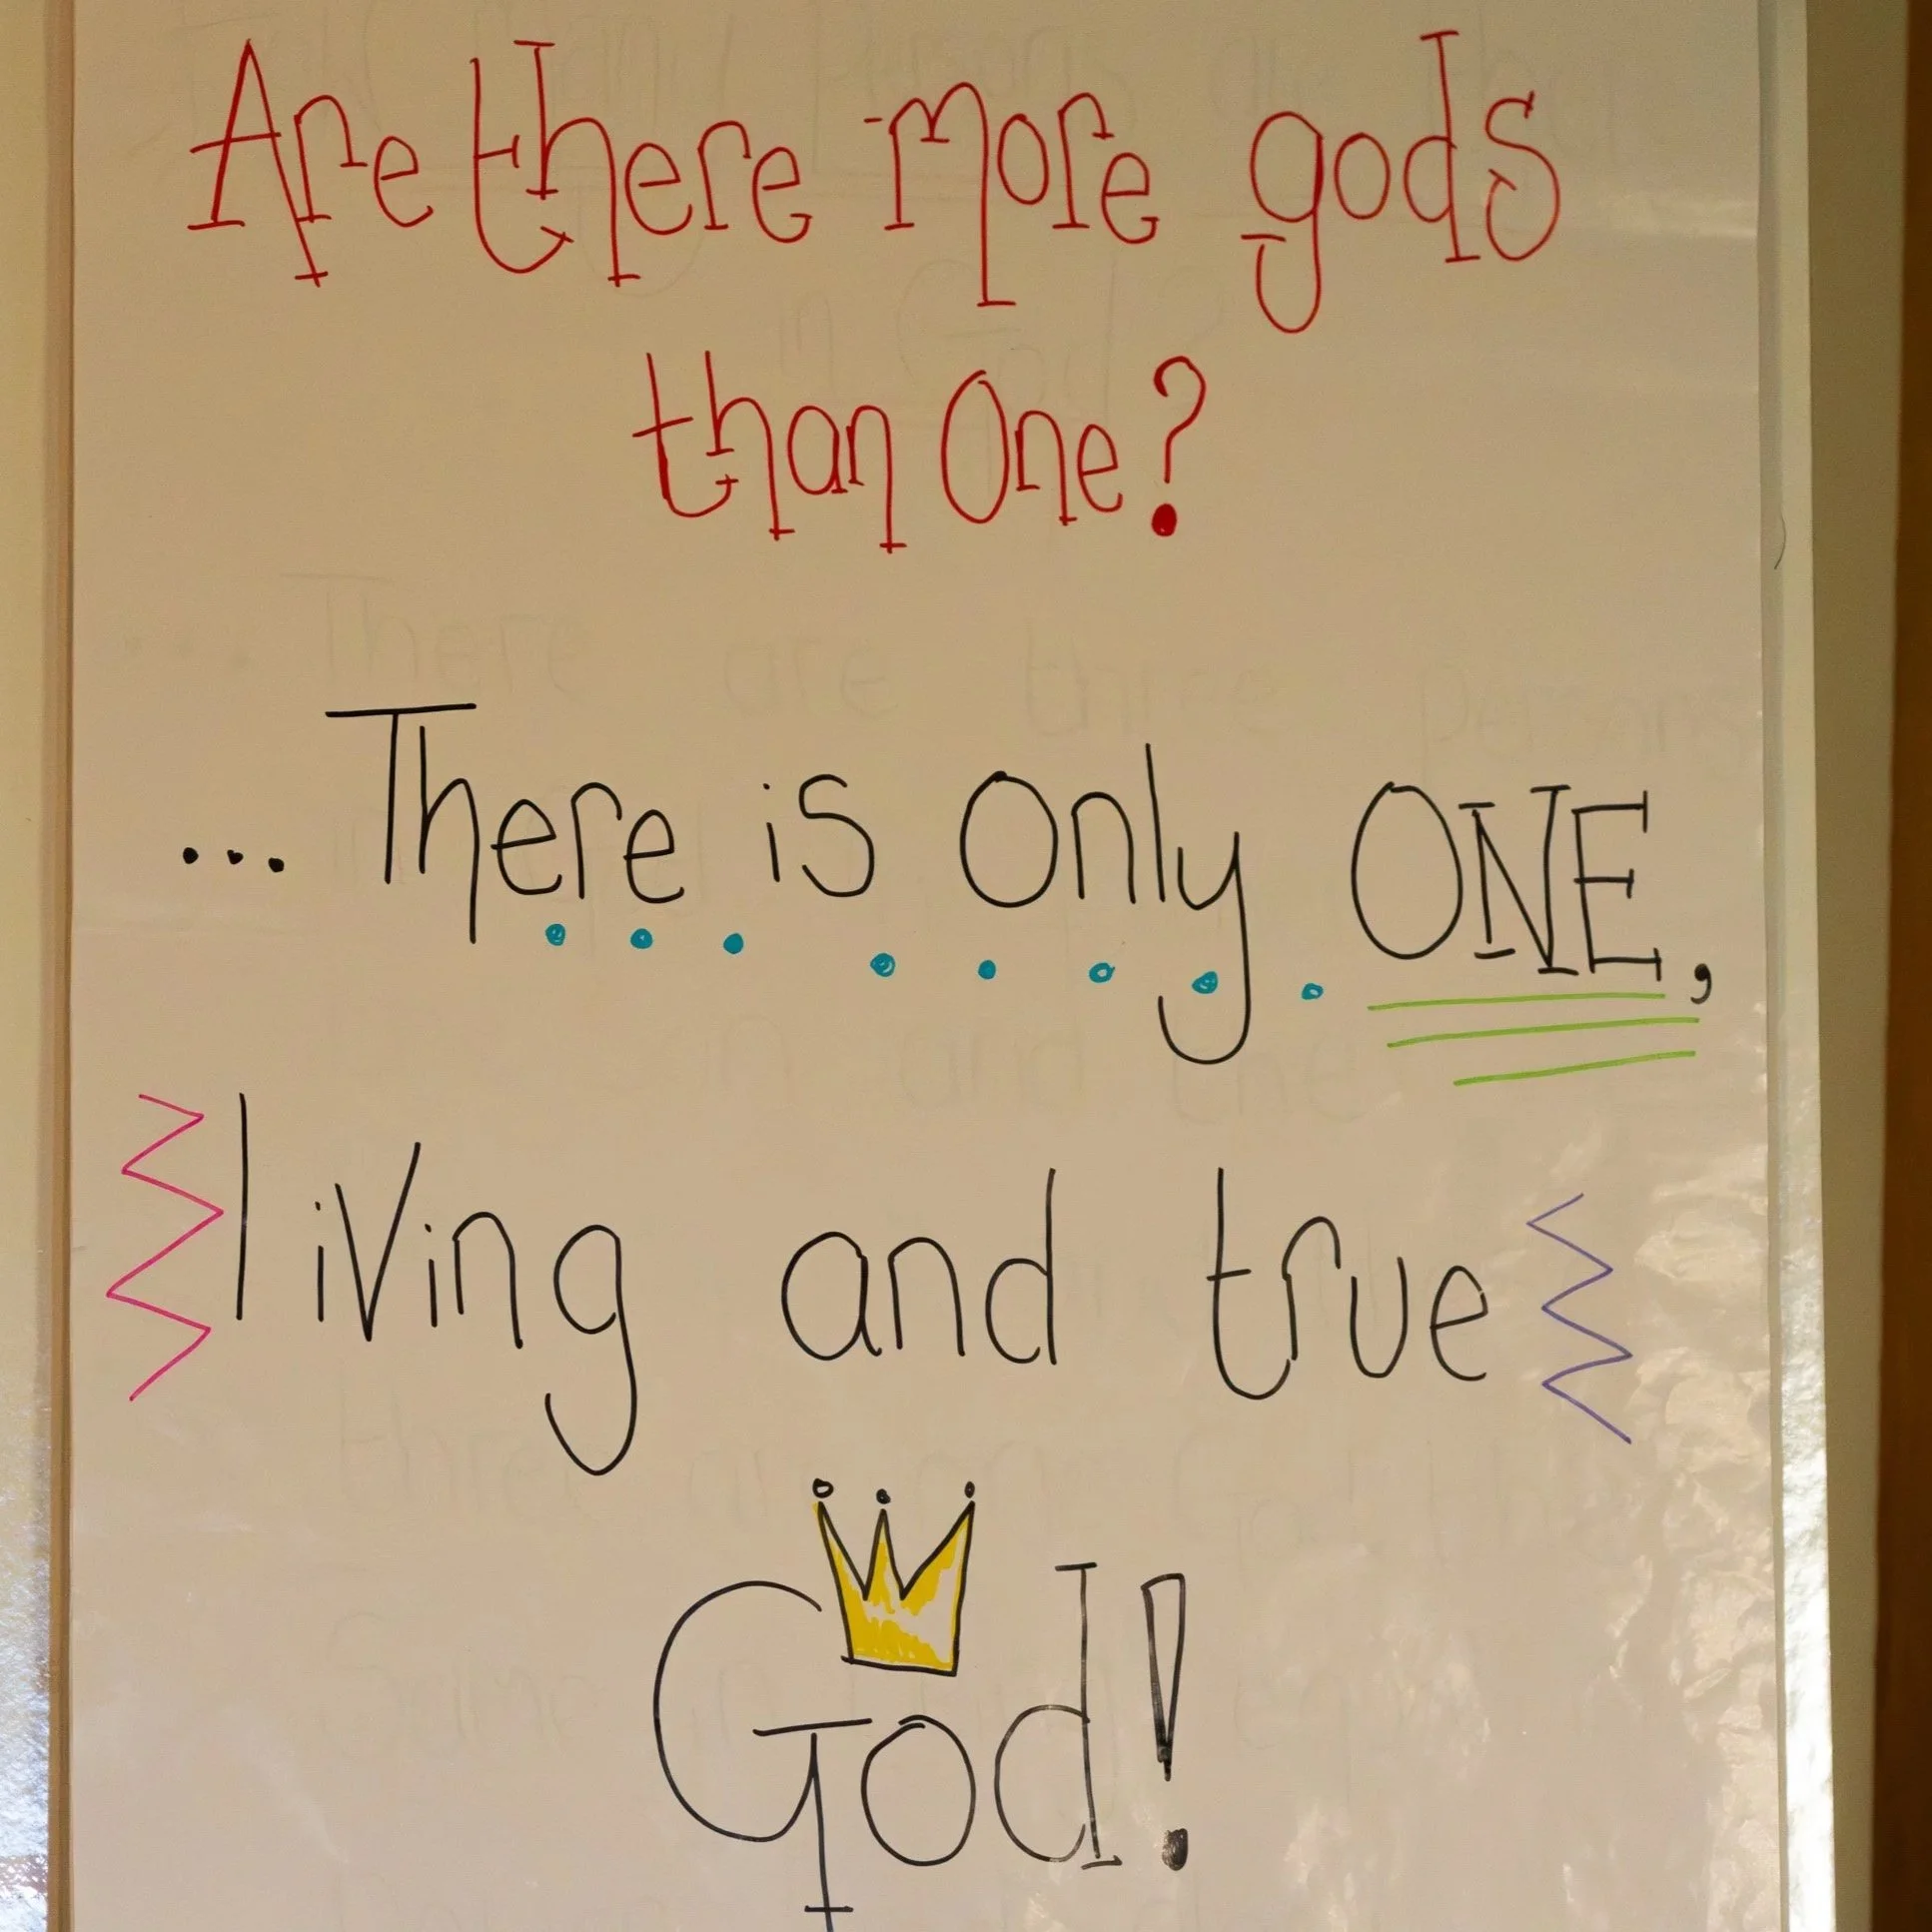 Are there more gods
than One?
... There is only ONE,
living and true
God!